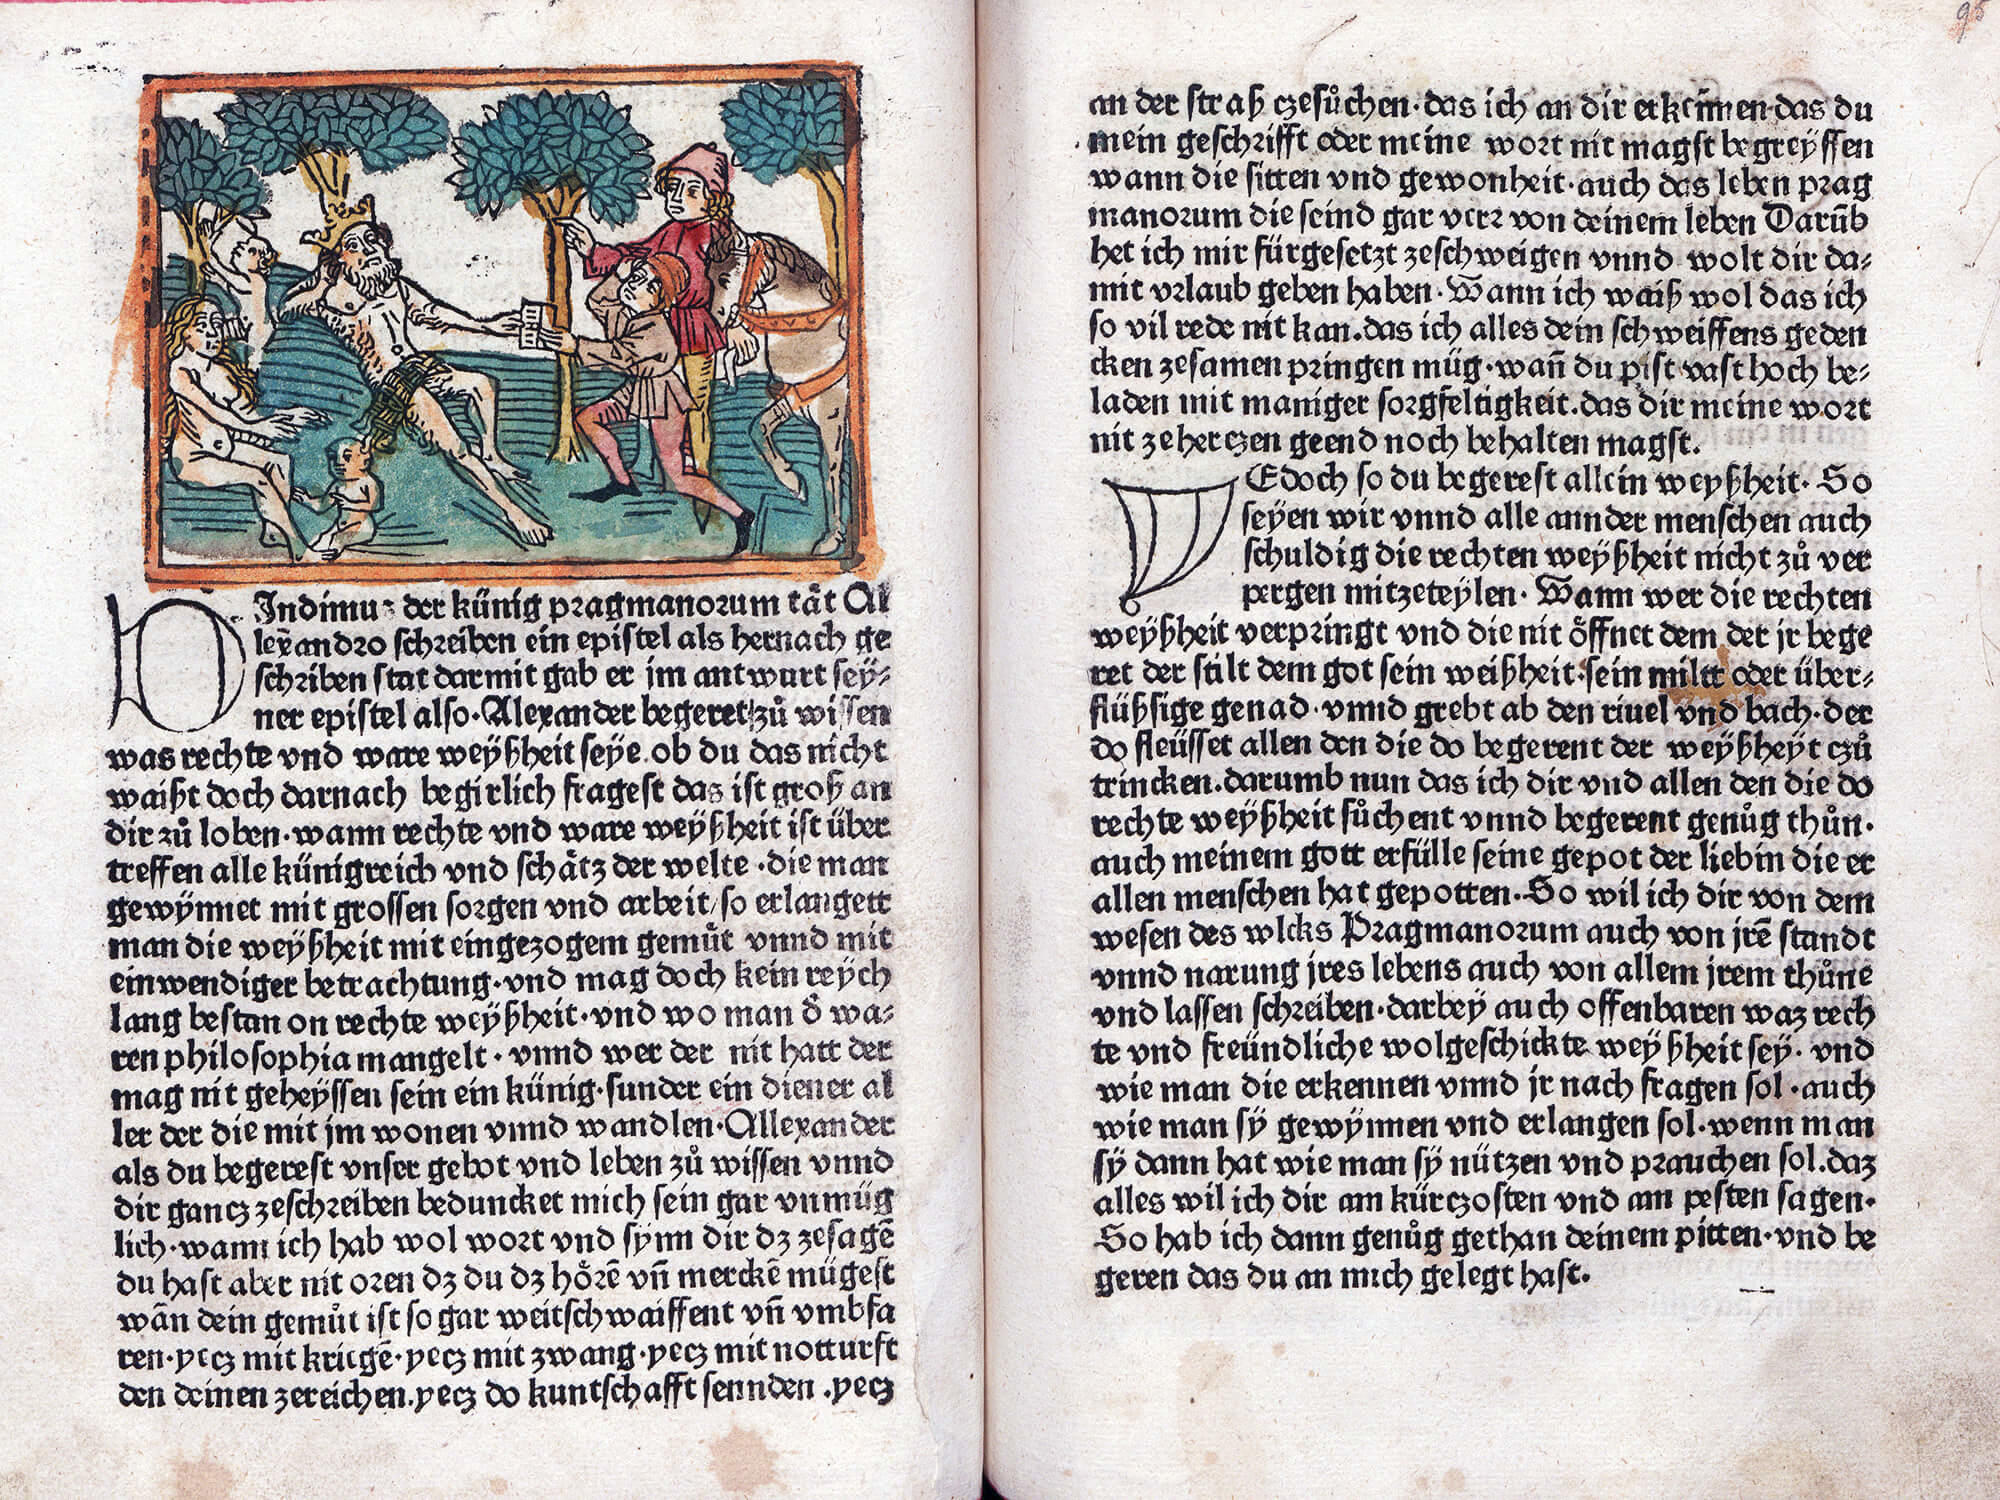 DIndimus der künig pragmanorum tåt Al
leẍandro schreiben ein epistel als hernach ge
schriben stat darmit gab er im antwurt seÿ⸗
ner epistel also· Alexander begeret zů wissen
was rechte vnd ware weyßheit seye. ob du das nicht
waißt doch darnach begirlich fragest das ist groß an
dir zů loben· wann rechte vnd ware weÿßheit ist über
treffen alle künigreich vnd schåtz der welte · die man
gewÿnnet mit grossen sorgen vnd arbeit/ so erlangett
man die weÿßheit mit eingezogem gemůt vnnd mit
einwendiger betrachtung· vnd mag doch kein reÿch
lang bestan on rechte weÿßheit· vnd wo man d̄ wa⸗
ren philosophia mangelt · vnnd wer der nit hatt der
mag nit geheÿssen sein ein künig· sunder ein diener al
ler der die mit jm wonen vnnd wandlen· Allexander
als du begerest vnser gebot vnd leben zů wissen vnnd
dir gancz zeschreiben beduncket mich sein gar vnmüg
lich· wann ich hab wol wort vnd sÿnn dir dz zesagē
du hast aber nit oren dz du dz hörē vn̄ merckē mügest
wān dein gemůt ist so gar weitschwaiffent vn̄ vmbfa
ren· yecz mit kriegē· yecz mit zwang· yecz mit notturft
den deinen zereichen. yecz do kuntschafft sennden . yecz
95
an der straß czesůchen· das ich an dir erkennen das du
mein geschrifft oder meine wort nit magst begreÿffen
wann die sitten vnd gewonheit· auch das leben prag
manorum die seind gar verr von deinem leben Darūb
het ich mir fürgesetzt zeschweigen vnnd wolt dir da⸗
mit vrlaub geben haben· Wann ich waiß wol das ich
so vil rede nit kan. das ich alles dein schweiffens geden
cken zesamen pringen müg· wan̄ du pist vast hoch be⸗
laden mit maniger sorgfeltigkeit. das dir meine wort
nit ze herczen geend noch behalten magst.
Edoch so du begerest allein weyßheit· So
seÿen wir vnnd alle annder menschen auch
schuldig die rechten weÿßheit nicht zů ver
pergen mitzeteÿlen· Wann wer die rechten
weÿßheit verpringt vnd die nit öffnet dem der jr bege
ret der stilt dem got sein weißheit· sein miltt oder über⸗
flüßsige genad· vnnd grebt ab den riuel vnd bach· der
do fleüsset allen den die do begerent der weÿßheÿt czů
trincken. darumb nun das ich dir vnd allen den die do
rechte weÿßheit sůchent vnnd begerent genůg thůn·
auch meinem gott erfülle seine gepot der liebin die er
allen menschen hat gepotten· So wil ich dir von dem
wesen des wlcks Pragmanorum auch von jrē standt
vnnd narung jres lebens auch von allem jrem thůne
vnd lassen schreiben· darbeÿ auch offenbaren waz rech
te vnd freündliche wolgeschickte weÿßheit seÿ· vnd
wie man die erkennen vnnd jr nach fragen sol · auch
wie man sÿ gewÿnnen vnd erlangen sol· wenn man
sÿ dann hat wie man sÿ nützen vnd prauchen sol. daz
alles wil ich dir am kürczosten vnd am pesten sagen·
So hab ich dann genůg gethan deinem pitten· vnd be
geren das du an mich gelegt hast.